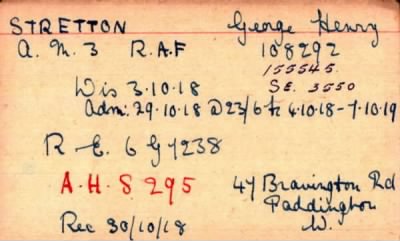 STRETTON George Henry
A. M. 3 R.A.F 108292
155545.
SE. 3550
Dis 3.10.18
Adm: 29.10.18 @ 23/6 fr 4.10.18-7.10.19
R E. 6 G 7238
A.H.S 295 47 Bravington Rd
Paddington
W.
Rec 30/10/18